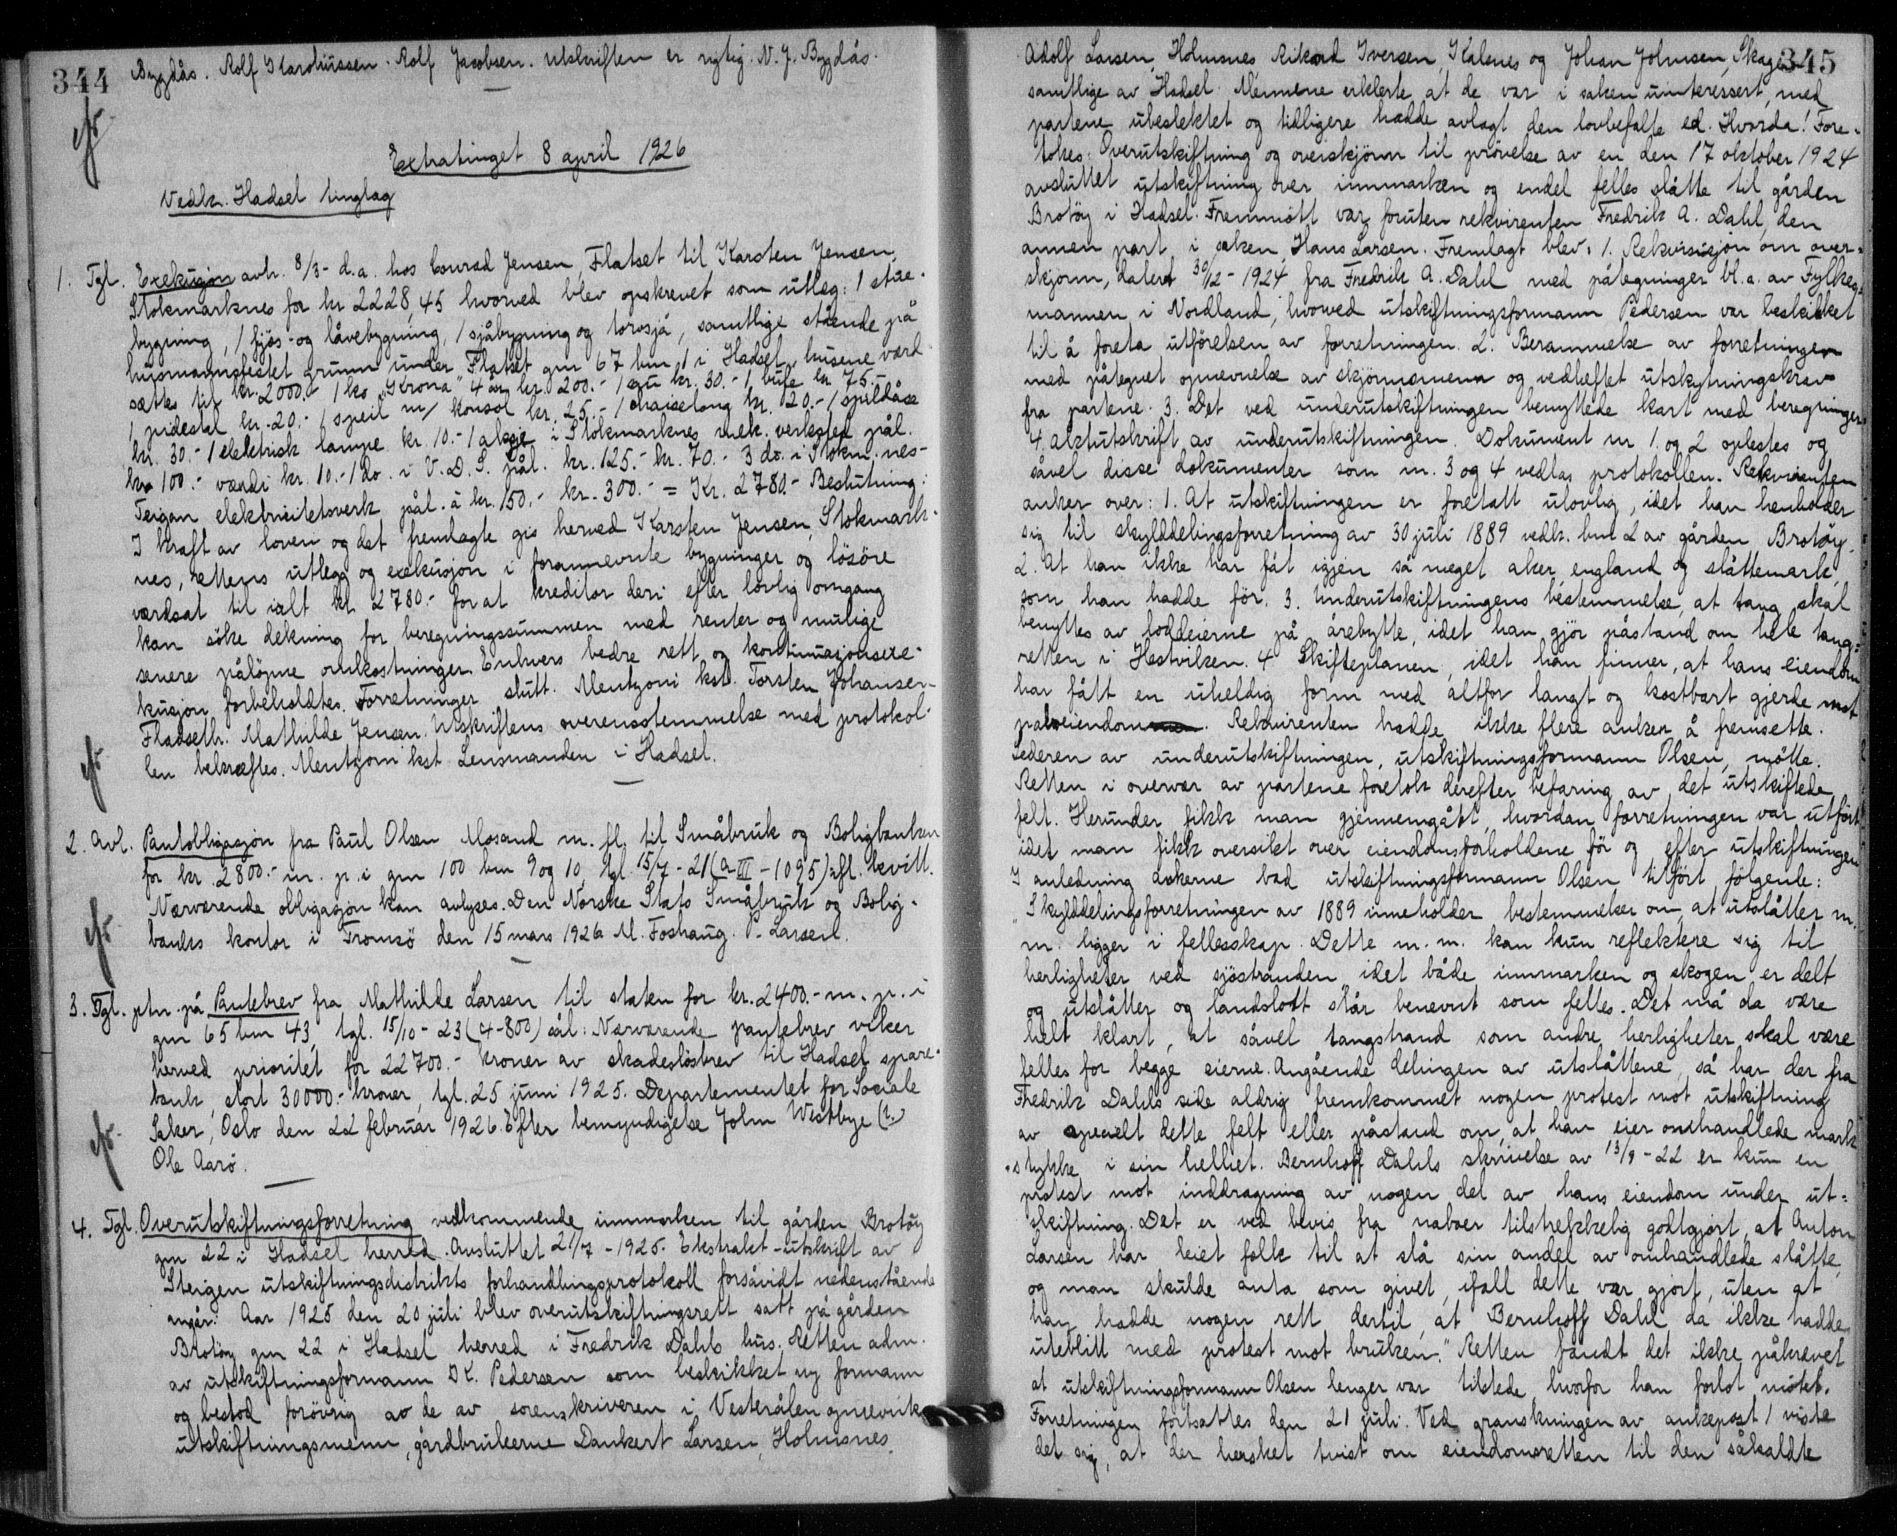 344
Bygdås. Rolf Karoliussen. Rolf Jacobsen. Utskriften er rigtig. N. J. Bygdås.
Extratinget 8 april 1926
Vedk. Hadsel tinglag
1. Tgl. Exekusjon avh. 8/3- d.a. hos Conrad Jensen, Flatset til Karsten Jensen,
Stokmarknes for kr 2228,45 hvorved blev opskrevet som utleg: 1 stue-
bygning, 1 fjös- og låvebygning, 1 sjåbygning og torvsjå, samtlige stående på
husmannsfestet grunn under Flatset gnr 67 bnr 1 i Hadsel, husene værd-
sættes til kr. 2000.- 1 ko "Krona" 4 år kr. 200.- 1 gru kr. 30.- 1 bufe kr. 75.-
1 pidestal kr. 20.- 1 speil m/ konsol kr. 25.- 1 chaiselong kr. 20.- 1 spildåse
kr. 30.- 1 elektrisk lampe kr. 10.- 1 aksje i Stokmarknes mek. verksted pål.
kr 100.- værdi kr. 10.- 1 do. i V.D.S. pål. kr. 125.- kr. 70.- 3 do. i Stokm.nes-
Teigan elektricitetsverk pål. à kr. 150.- kr. 300.- = Kr. 2780.- Beslutning:
I kraft av loven og det fremlagte gis herved Karsten Jensen, Stokmark-
nes, rettens utlegg og exekusjon i forannevnte bygninger og lösöre
værdsat til ialt kr. 2780.- for at kreditor deri efter lovlig omgang
kan söke dekning for beregningssummen med renter og mulige
senere pålöpne omkostninger. Enhvers bedre rett og kontinuasjonsexe-
kusjon forbeholdtes. Forretninger slutt. Mentzoni kst. Torsten Johansen
Fladseth. Mathilde Jensen. Utskriftens overensstemmelse med protokol-
len bekræftes. Mentzoni kst. Lensmanden i Hadsel.
2. Avl. Pantobligasjon fra Paul Olsen Mosand m. fl. til Småbruk og Boligbanken
for kr. 2800.- m. p. i gnr 100 bnr 9 og 10, tgl. 15/7-21 (a III-1095) afl. kvitt.
Nærværende obligasjon kan avlyses. Den Norske Stats Småbruk og Bolig-
banks kontor i Tromsö den 15 mars 1926 M. Foshaug. P. Larsen.
3. Tgl. ptn. på Pantebrev fra Mathilde Larsen til staten for kr. 2400.- m. p. i
gnr 65 bnr 43, tgl. 15/10-23 (4-800) sål: Nærværende pantebrev viker
herved prioritet for 22700.- kroner av skadeslösbrev til Hadsel spare-
bank, stort 30000.- kroner, tgl. 25 juni 1925. Departementet for Sociale
Saker, Oslo den 22 februar 1926. Efter bemyndigelse John Westbye (?)
Ole Aarö.
4. Tgl. Overutskiftningsforretning vedkommende innmarken til gården Brotöy
gnr 22 i Hadsel herred. Avsluttet 21/7-1925. Ekstrakt-utskrift av
Steigen utskiftningsdistrikts forhandlingsprotokoll forsåvidt nedenstående
angår: Aar 1925 den 20 juli blev overutskiftningsrett satt på gården
Brotöy gnr 22 i Hadsel herred i Fredrik Dahls hus. Retten adm.
av utskiftningsformann D K. Pedersen som beskikket ny formann
og bestod forövrig av de av sorenskriveren i Vesterålen opnevnte
utskiftningsmenn, gårdbrukerne Dankert Larsen, Holmsnes
345
Adolf Larsen, Holmsnes Rikard Iversen, Kalsnes og Johan Johnsen, Skagen
samtlige av Hadsel. Mennene erklerte at de var i saken uinteressert, med
partene ubeslektet og tidligere hadde avlagt den lovbefalte ed. Hvorda! Fore-
tokes: Overutskiftning og overskjönn til prövelse av en den 17 oktober 1924
avsluttet utskiftning over innmarken og endel felles slåtte til gården
Brotöy i Hadsel. Fremmött var foruten rekvirenten Fredrik A. Dahl, den
annen part i saken, Hans Larsen. Fremlagt blev: 1. Rekvisisjon om over-
skjönn, datert 30/12-1924 fra Fredrik A. Dahl med påtegninger bl. a. av Fylkes-
mannen i Nordland, hvorved utskiftningsformann Pedersen var beskikket
til å foreta utförelsen av forretningen. 2. Berammelse av forretningen
med påtegnet opnevnelse av skjönnsmenn og vedheftet utskytningskrav
fra partene. 3. Det ved underutskiftningen benyttede kart med beregninger.
4. aktutskrift av underutskiftningen. Dokument nr 1. og 2 oplestes og
såvel disse dokumenter som nr. 3 og 4 vedtas protokollen. Rekvirenten
anker over: 1. At utskiftningen er foretatt ulovlig, idet han henholder
sig til skylddelingsforretning av 30 juli 1889 vedk. bnr 2 av gården Brotöy.
2. At han ikke har fåt igjen så meget aker, england og slåttemark,
som han hadde för. 3. Underutskiftningens bestemmelse, at tang skal
benyttes av loddeierne på årebytte, idet han gjör påstand om hele tang-
retten i Hestviken. 4. Skifteplanen, idet han finner, at hans eiendom
har fått en uheldig form med altfor langt og kostbart gjerde mot
naboeiendommen. Rekvirenten hadde ikke flere anker å fremsette.
Lederen av underutskiftningen, utskiftningsformann Olsen, mötte.
Retten i overvær av partene foretok derefter befaring av det utskiftede
felt. Herunder fikk man gjennemgått, hvordan forretningen var utfört
idet man fikk oversikt over eiendomsforholdene för og efter utskiftningen
I anledning ankerne bad utskiftningsformann Olsen tilfört følgende:
"Skylddelingsforretningen av 1889 inneholder bestemmelser om, at utslåtter m.
m. ligger i fellesskap. Dette m. m. kan kun reflektere sig til
herligheter ved sjöstranden, idet både innmarken og skogen er delt
og utslåtter og landslott står benevnt som felles. Det må da være
helt klart, at såvel tangstrand som andre herligheter skal være
felles for begge eierne. Angående delingen av utslåttene, så har der fra
Fredrik Dahls side aldrig fremkommet nogen protest mot utskiftning
av specielt dette felt eller påstand om, at han eier omhandlede mark-
stykke i sin helhet. Bernhoff Dahls skrivelse av 13/9-22 er kun en
protest mot inddragning av nogen del av hans eiendom under ut-
skiftning. Det er ved bevis fra naboer tilstrekkelig godtgjort, at Anton
Larsen har leiet folk til at slå sin andel av omhandlede slåtte,
og man skulde anta som givet, ifall dette var gjort, uten at
han hadde nogen rett dertil, at Bernhoff Dahl da ikke hadde
uteblitt med protest mot bruken." Retten fandt det ikke påkrevet
at utskiftningsformann Olsen lenger var tilstede, hvorfor han forlot mötet.
Forretningen fortsattes den 21 juli. Ved granskningen av ankepost 1 viste
det sig, at der hersket tvist om eiendomsretten til den såkaldte